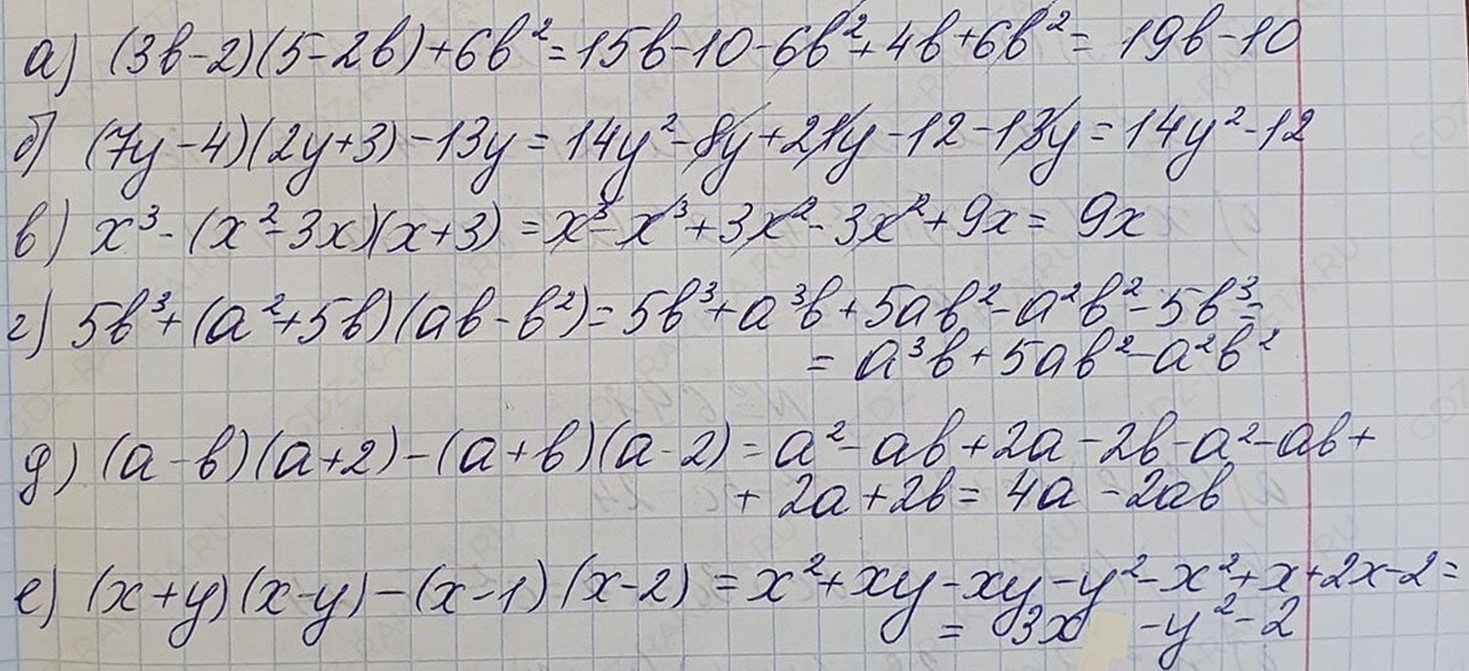 а) (3b-2)(5-2b)+6b²=15b-10-6b²+4b+6b²= 19b-10
б) (7y-4)(2y+3)-13y=14y²-8y+21y-12-13y=14y²-12
в) x³-(x²-3x)(x+3)=x³-x³+3x²-3x²+9x= 9x
г) 5b³+(a²+5b)(ab-b²)=5b³+a³b+5ab²-a²b²-5b³=
= a³b+5ab²-a²b²
д) (a-b)(a+2)-(a+b)(a-2)=a²-ab+2a-2b-a²-ab+
+ 2a+2b= 4a-2ab
е) (x+y)(x-y)-(x-1)(x-2)=x²+xy-xy-y²-x²+x+2x-2=
= 3x -y²-2